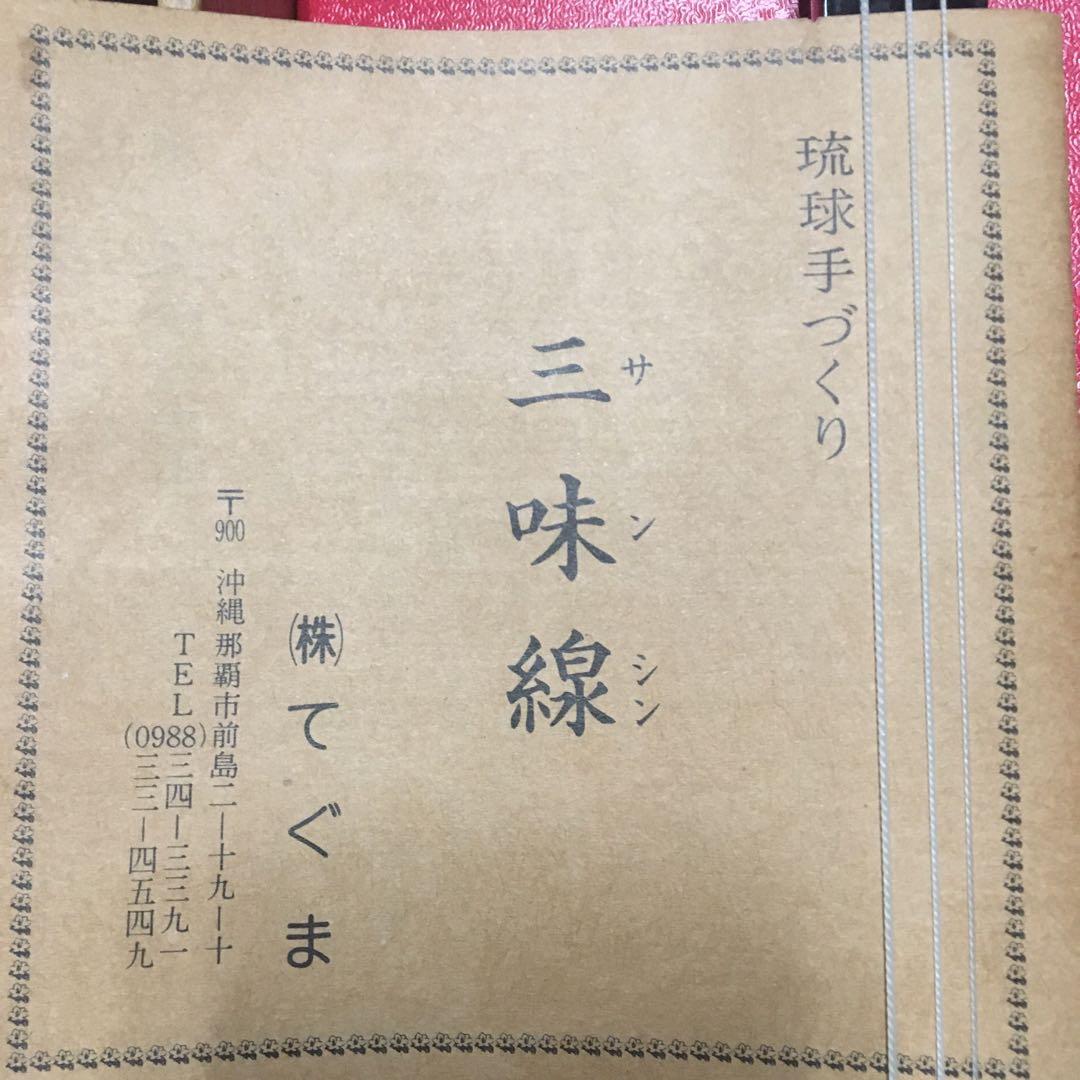 琉球手づくり
三味線
サンシン
㈱てぐま
〒900 沖縄那覇市前島二ー十九ー十
TEL(0988)三四ー三三九一
三三ー四五四九